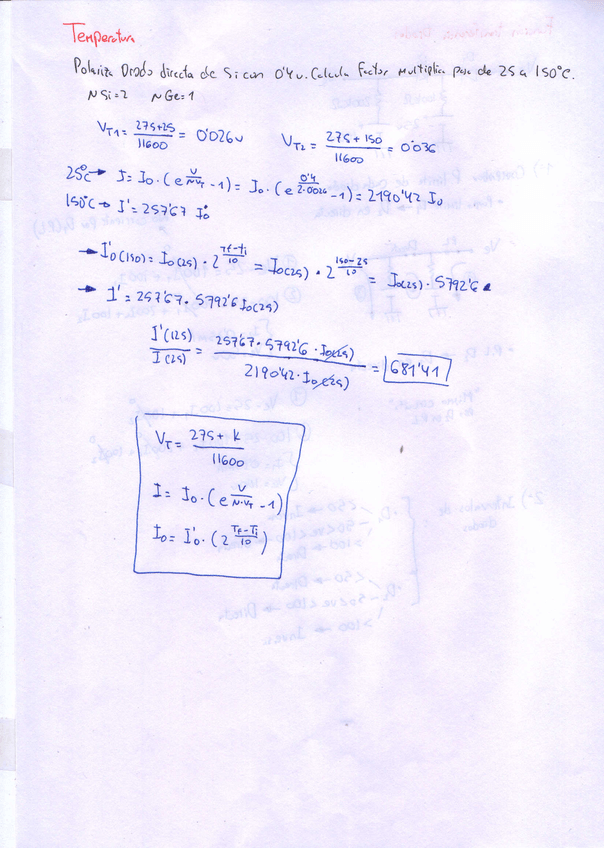 Temperatura
Polariza Diodo directa de Si con 0'4v. Calcula Factor Multiplica pasa de 25 a 150°C.
N Si=2 N Ge=1
VT1 = 275+25/11600 = 0'026v VT2 = 275+150/11600 = 0'036
25°C → I = Io·(e^(V/N·VT) -1) = Io·(e^(0'4/2·0026) -1) = 2190'42 Io
150°C → I' = 257'67 I'o
→ I'o(150) = Io(25)·2^(Tf-Ti/10) = Io(25)·2^(150-25/10) = Io(25)·5792'6
→ I' = 257'67·5792'6 Io(25)
I'(125)/I(25) = 257'67·5792'6·Io(25)/2190'42·Io(25) = 681'41
VT = 275+k/11600
I = Io·(e^(V/N·VT) -1)
Io = I'o·(2^(Tf-Ti/10))